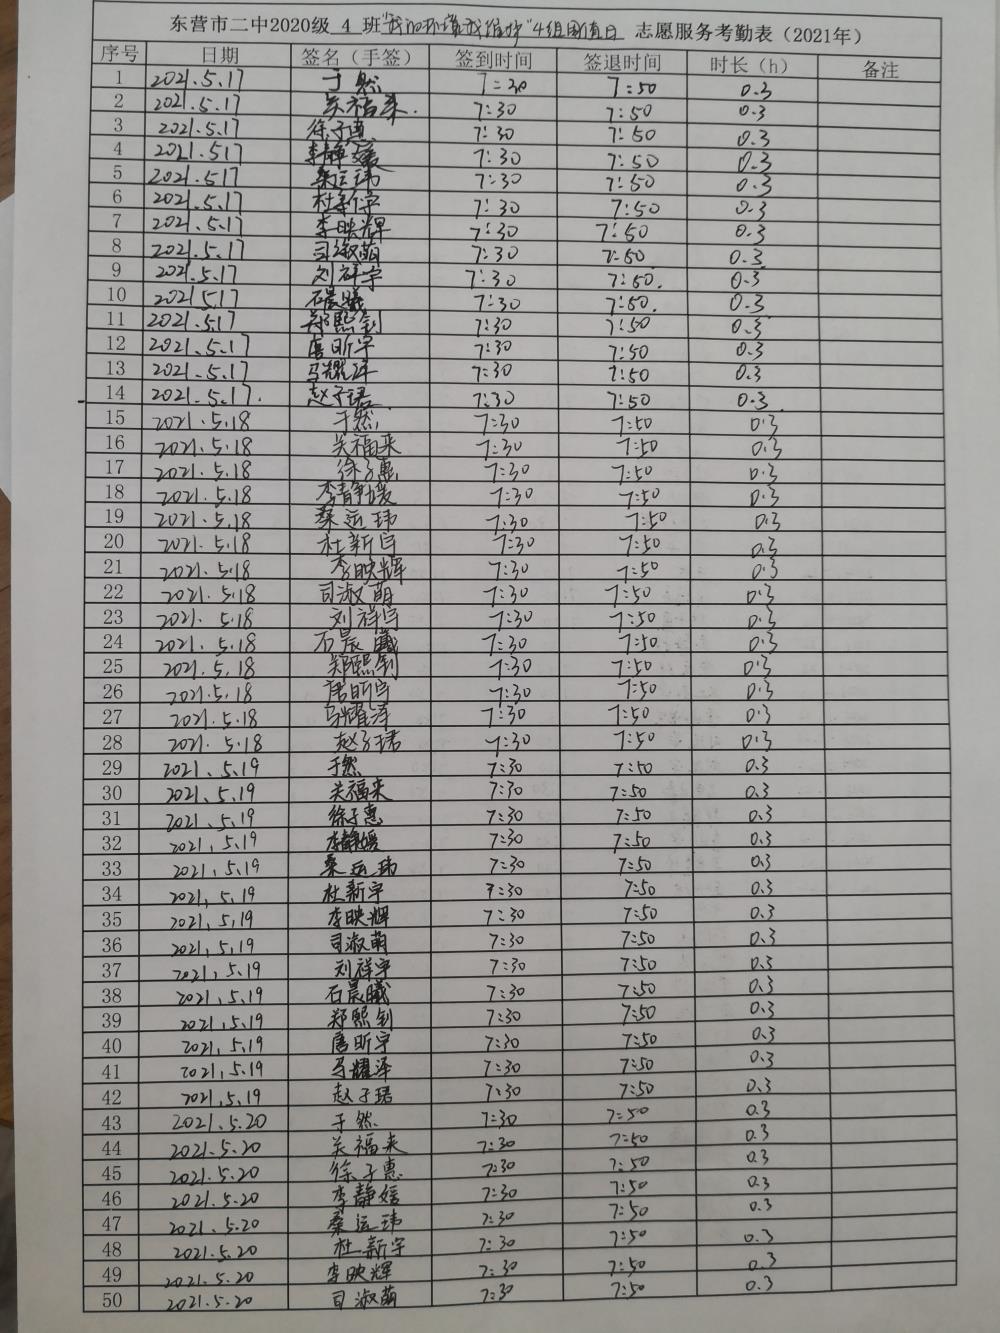 东营市二中2020级 4 班"我的环境我维护"4组周值日 志愿服务考勤表（2021年）
序号 日期 签名（手签） 签到时间 签退时间 时长（h） 备注
1 2021.5.17 于然 7:30 7:50 0.3
2 2021.5.17 关福来. 7:30 7:50 0.3
3 2021.5.17 徐子惠 7:30 7:50 0.3
4 2021.517 李静媛 7:30 7:50 0.3
5 2021.517 桑运玮 7:30 7:50 0.3
6 2021.5.17 杜新宇 7:30 7:50 0.3
7 2021.5.17 李映辉 7:30 7:50 0.3
8 2021.5.17 司淑萌 7:30 7:50 0.3
9 2021.5.17 刘祥宇 7:30 7:50. 0.3
10 2021.5.17 石晨曦 7:30 7:50. 0.3
11 2021.5.17 郑熙钊 7:30 7:50 0.3
12 2021.5.17 唐昕宇 7:30 7:50 0.3
13 2021.5.17 马耀泽 7:30 7:50 0.3
14 2021.5.17. 赵子珺 7:30 7:50 0.3
15 2021.5.18 于然 7:30 7:50 0.3
16 2021.5.18 关福来 7:30 7:50 0.3
17 2021.5.18 徐子惠 7:30 7:50 0.3
18 2021.5.18 李静媛 7:30 7:50 0.3
19 2021.5.18 桑运玮 7:30 7:50 0.3
20 2021.5.18 杜新宇 7:30 7:50 0.3
21 2021.5.18 李映辉 7:30 7:50 0.3
22 2021.5.18 司淑萌 7:30 7:50 0.3
23 2021.5.18 刘祥宇 7:30 7:50 0.3
24 2021.5.18 石晨曦 7:30 7:50 0.3
25 2021.5.18 郑熙钊 7:30 7:50 0.3
26 2021.5.18 唐昕宇 7:30 7:50 0.3
27 2021.5.18 马耀泽 7:30 7:50 0.3
28 2021.5.18 赵子珺 7:30 7:50 0.3
29 2021.5.19 于然 7:30 7:50 0.3
30 2021.5.19 关福来 7:30 7:50 0.3
31 2021.5.19 徐子惠 7:30 7:50 0.3
32 2021.5.19 李静媛 7:30 7:50 0.3
33 2021.5.19 桑运玮 7:30 7:50 0.3
34 2021.5.19 杜新宇 7:30 7:50 0.3
35 2021.5.19 李映辉 7:30 7:50 0.3
36 2021.5.19 司淑萌 7:30 7:50 0.3
37 2021.5.19 刘祥宇 7:30 7:50 0.3
38 2021.5.19 石晨曦 7:30 7:50 0.3
39 2021.5.19 郑熙钊 7:30 7:50 0.3
40 2021.5.19 唐昕宇 7:30 7:50 0.3
41 2021.5.19 马耀泽 7:30 7:50 0.3
42 2021.5.19 赵子珺 7:30 7:50 0.3
43 2021.5.20 于然 7:30 7:50 0.3
44 2021.5.20 关福来 7:30 7:50 0.3
45 2021.5.20 徐子惠 7:30 7:50 0.3
46 2021.5.20 李静媛 7:30 7:50 0.3
47 2021.5.20 桑运玮 7:30 7:50 0.3
48 2021.5.20 杜新宇 7:30 7:50 0.3
49 2021.5.20 李映辉 7:30 7:50 0.3
50 2021.5.20 司淑萌 7:30 7:50 0.3